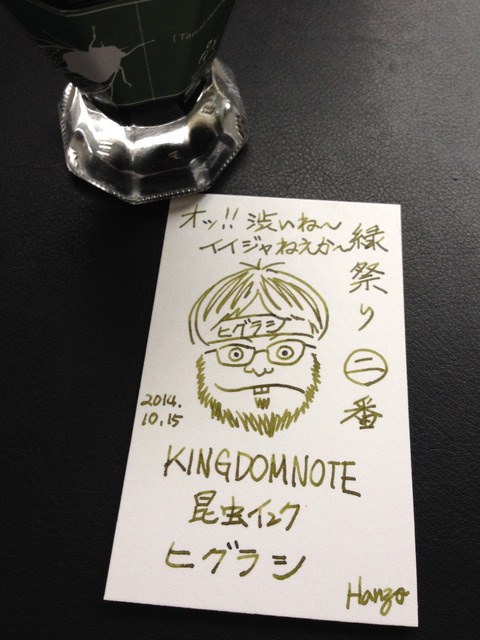 [Tan
オッ!! 渋いね〜
イイジャねえか〜
緑祭り㊁番
ヒグラシ
2014.
10.15
KINGDOMNOTE
昆虫インク
ヒグラシ
Hanzo